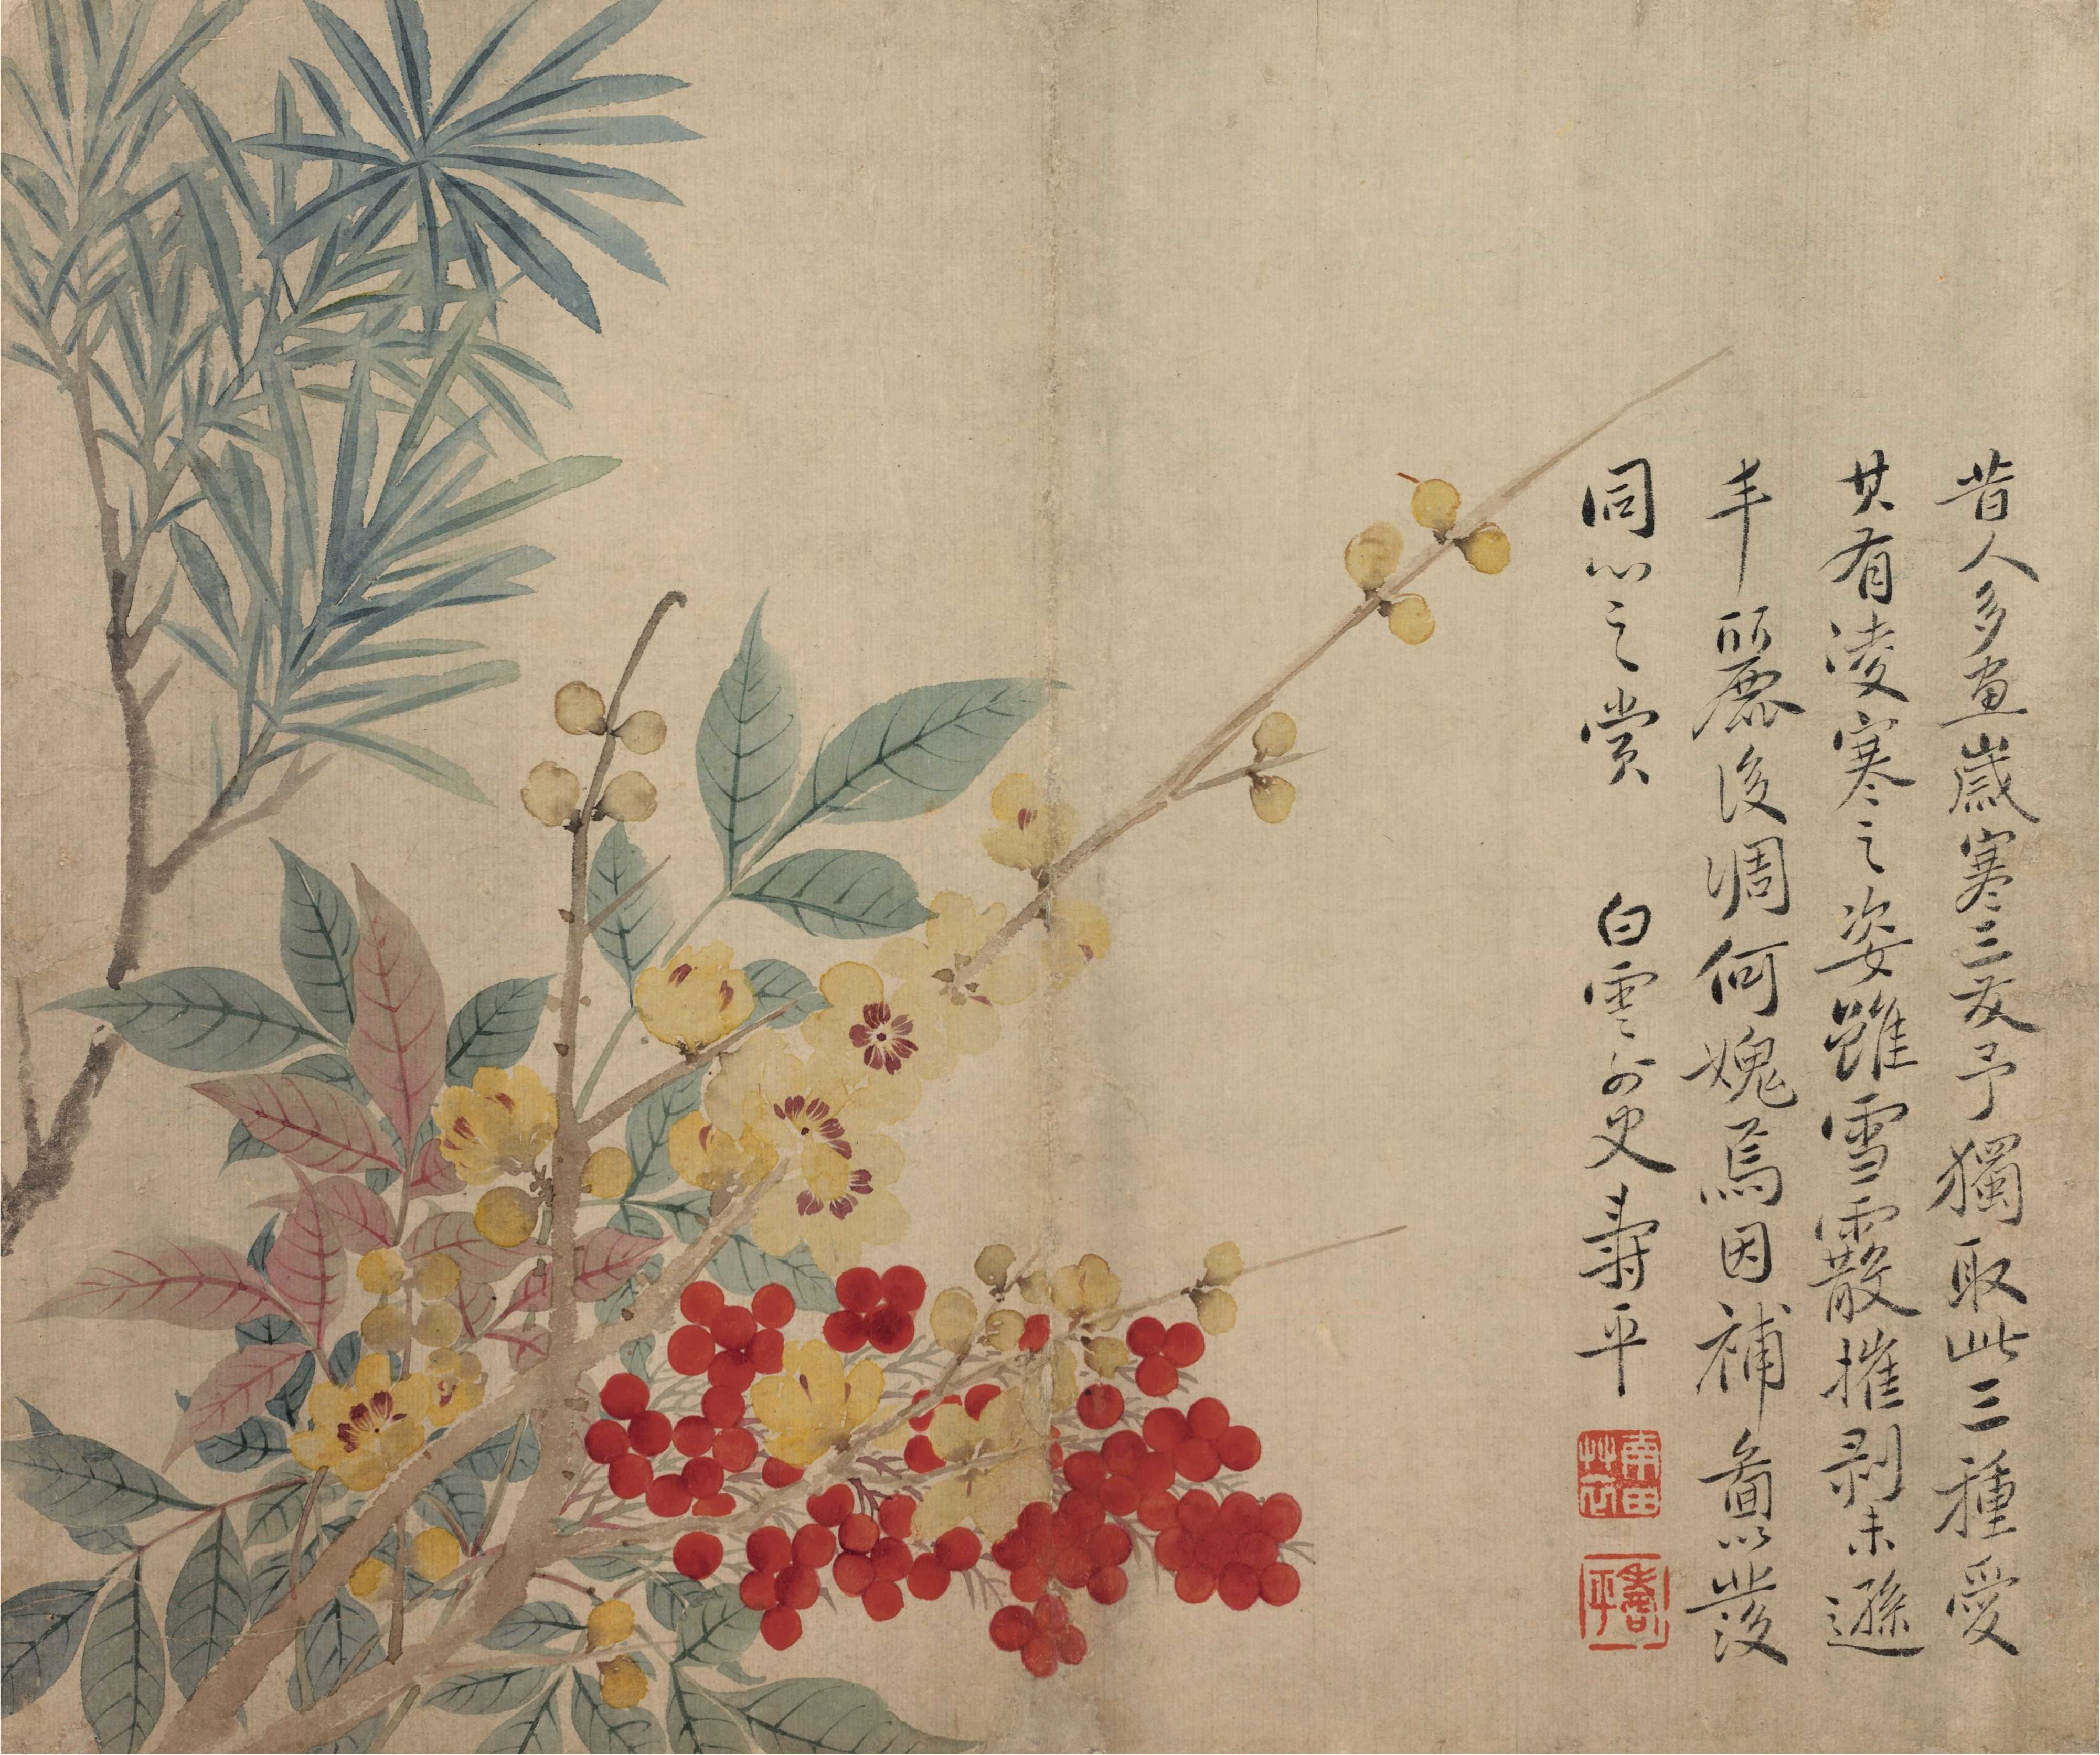 昔人多畫歲寒三友予獨取此三種愛
其有淩寒之姿雖雪霰摧剥未遜
丰麗後凋何媿焉因補啚以發
同心之賞　白雲外史壽平
南田艸衣
壽平